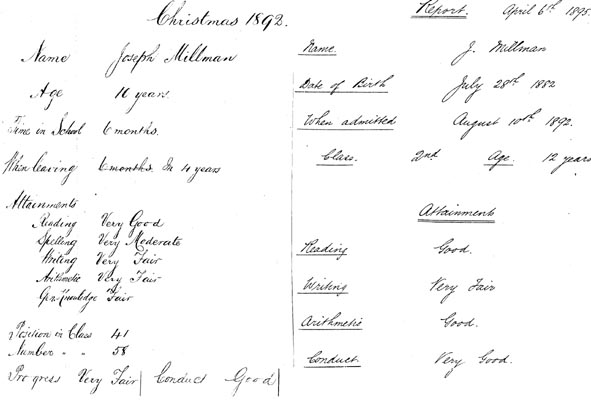 Christmas 1892.
Name Joseph Millman
Age 10 years.
Time in School 6 months.
When leaving 6 months. In 4 years
Attainments
Reading Very Good
Spelling Very Moderate
Writing Very Fair
Arithmetic Very Fair
Gen. Knowledge Fair
Position in Class 41
Number " " 58
Progress Very Fair | Conduct Good
Report. April 6th 1895.
Name. J. Millman
Date of Birth July 28th 1882
When admitted August 10th 1892.
Class. 2nd Age. 12 years
Attainment
Reading Good.
Writing Very Fair
Arithmetic Good.
Conduct Very Good.